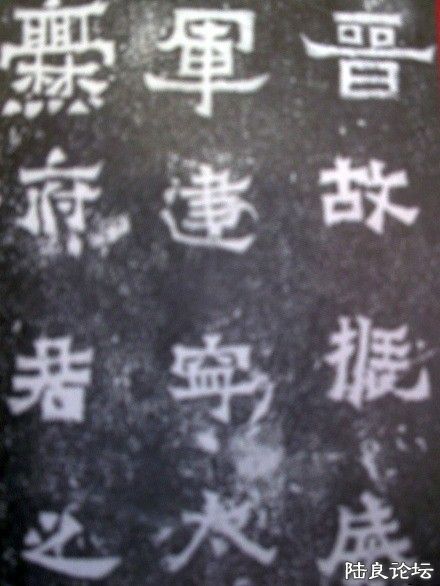 晉故振威
軍建寧太
爨府君之
陆良论坛